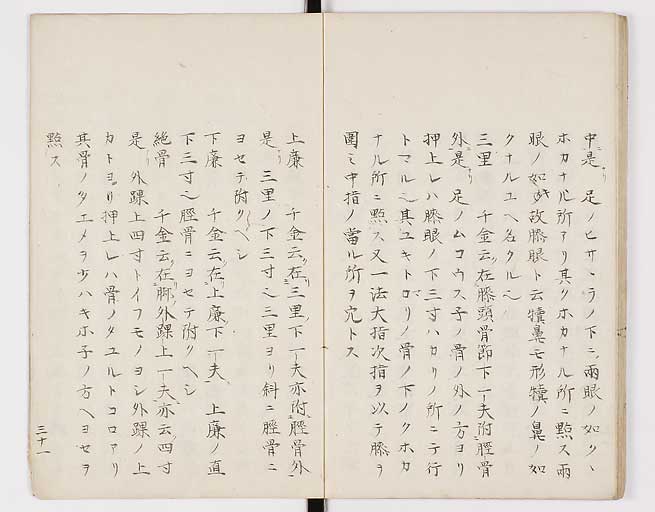 中是 足ノヒサラノ下ニ兩眼ノ如クヽ
ホカナル所アリ其クホカナル所ニ㸃ス兩
眼ノ如シ故膝眼ト云犢鼻モ形犢ノ鼻ノ如
クナルユヘ名クル也
三里 千金云在膝頭骨節下一夫附脛骨
外是 足ノムコウス子ノ骨ノ外ノ方ヨリ
押上レハ膝眼ノ下三寸ハカリノ所ニテ行
トマル也其ユキトマリノ骨ノ下ノクホカ
ナル所ニ㸃ス又一法大指次指ヲ以テ膝ヲ
圍ミ中指ノ當ル所ヲ穴トス
上廉 千金云在三里下一夫亦附脛骨外
是 三里ノ下三寸也三里ヨリ斜ニ脛骨ニ
ヨセテ附クヘシ
下廉 千金云在上廉下一夫 上廉ノ直
下三寸也脛骨ニヨセテ附クヘシ
絶骨 千金云在脚外踝上一夫亦云四寸
是 外踝上四寸トイフモノヨシ外踝ノ上
カトヨリ押上レハ骨ノタユルトコロアリ
其骨ノタエメヲ少ハキホ子ノ方ヘヨセヲ
㸃ス
三十一